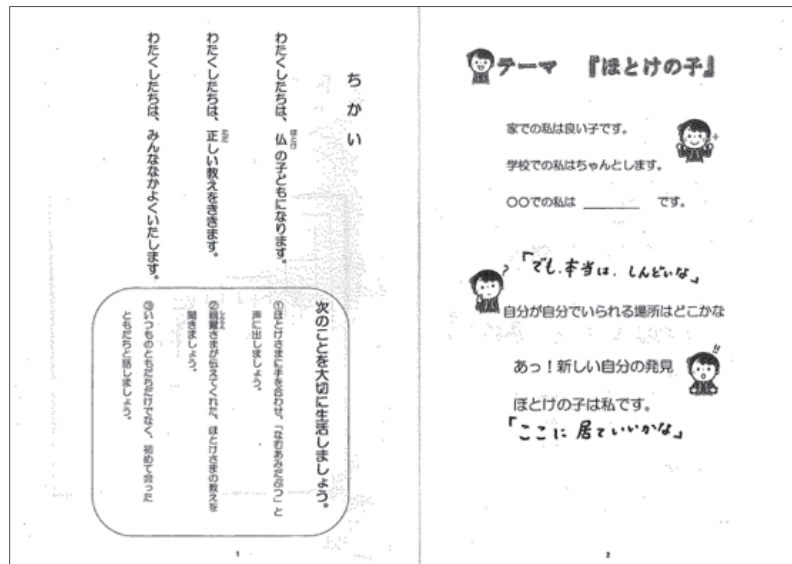 ちかい
わたくしたちは、仏の子どもになります。
ほとけ
わたくしたちは、正しい教えをききます。
ただ
わたくしたちは、みんななかよくいたします。
次のことを大切に生活しましょう。
①ほとけさまに手を合わせ、「なむあみだぶつ」と
声に出しましょう。
②親鸞さまが伝えてくれた、ほとけさまの教えを
聞きましょう。
③いつものともだちだけでなく、初めて会った
ともだちと話しましょう。
1
テーマ 『ほとけの子』
家での私は良い子です。
学校での私はちゃんとします。
〇〇での私は ______ です。
「でも、本当は、しんどいな」
自分が自分でいられる場所はどこかな
あっ！新しい自分の発見
ほとけの子は私です。
「ここに居ていいかな」
2